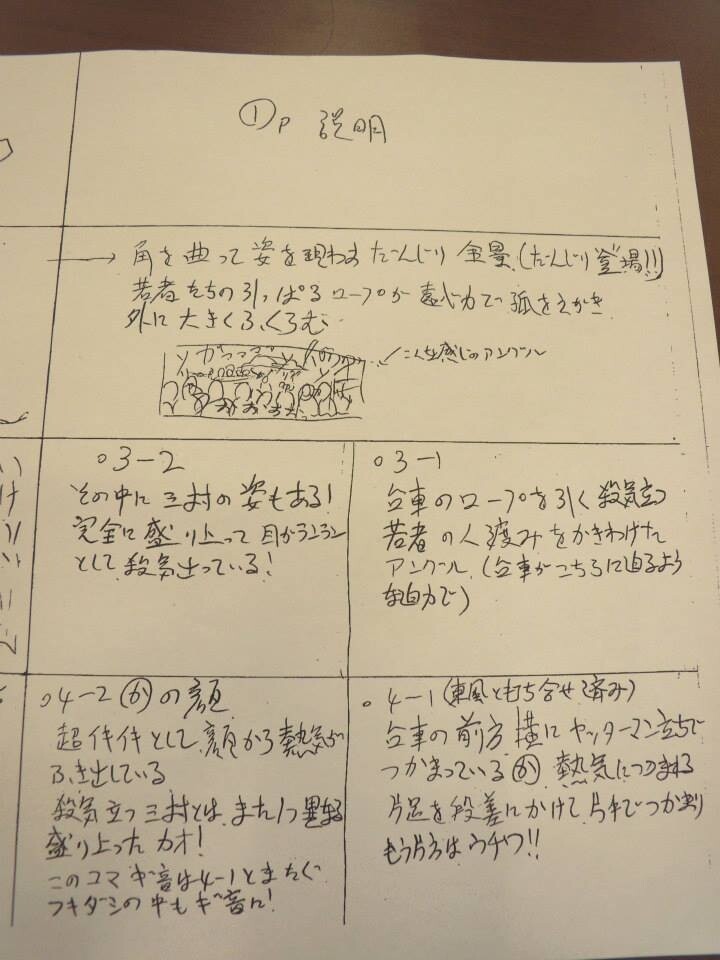 ①P 説明
→ 角を曲って姿を現わすだんじり 全景.(だんじり登場!!)
若者たちの引っぱるロープが遠心力で弧をえがき
外に大きくふくらむ
こんな感じのアングル
○3-1
台車のロープを引く殺気立つ
若者の人波みをかきわけた
アングル.(台車がこちらに迫るような
迫力で)
○3-2
その中に三村の姿もある!
完全に盛り上って目がランラン
として殺気立っている!
○4-1(東風と打ち合せ済み)
台車の前方 横にヤッターマン立ちで
つかまっている㋕ 熱気につつまれる
片足を段差にかけて 片手でつかまり
もう片方はウチワ!!
○4-2 ㋕の顔
超イキイキとして 顔から熱気が
ふき出している
殺気立つ三村とは、また1つ異なる
盛り上ったカオ!
このコマ ギ音は4-1とまたぐ
フキダシの中もギ音に!